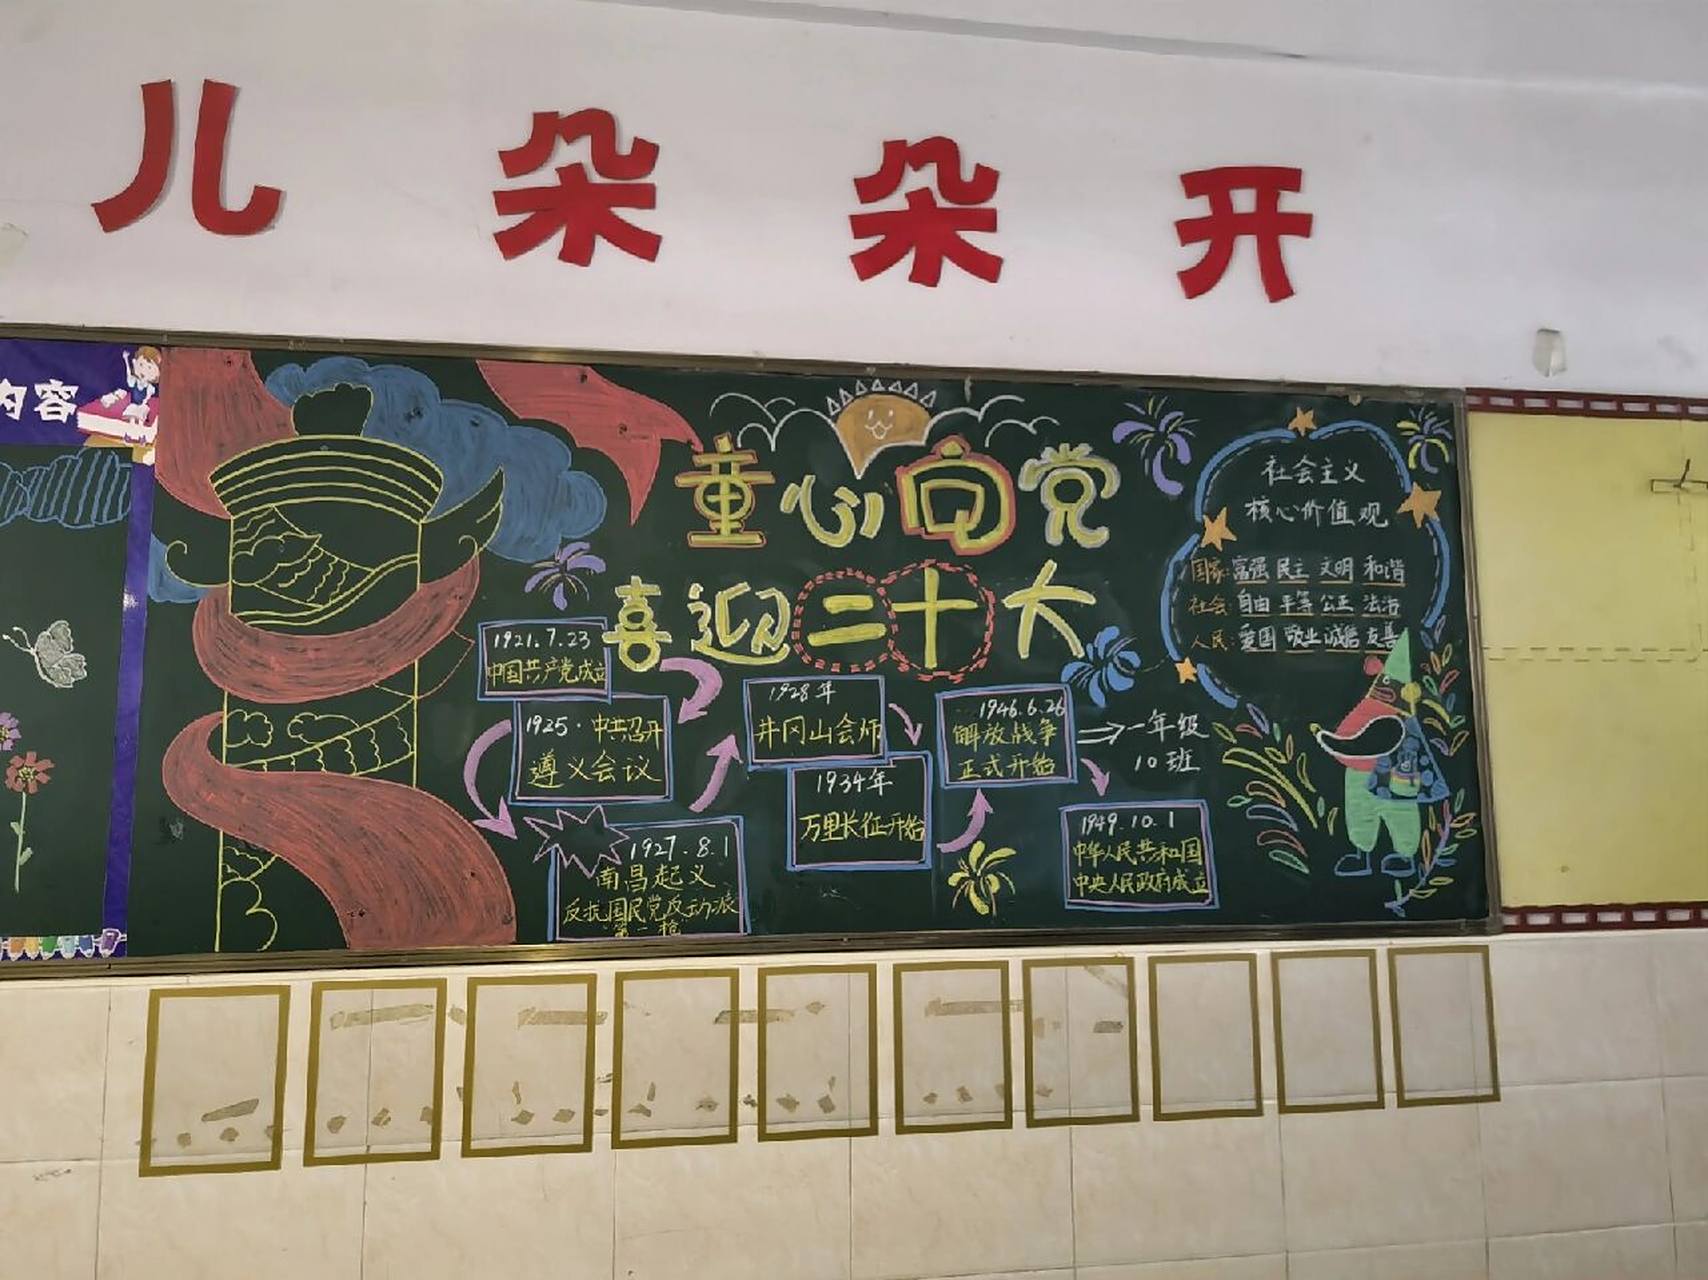 儿朵朵开
内容
童心向党
喜迎二十大
1921.7.23
中国共产党成立
1925.中共召开
遵义会议
1927.8.1
南昌起义
反抗国民党反动派
第一枪
1928年
井冈山会师
1934年
万里长征开始
1946.6.26
解放战争
正式开始
一年级
10班
1949.10.1
中华人民共和国
中央人民政府成立
社会主义
核心价值观
国家:富强 民主 文明 和谐
社会:自由 平等 公正 法治
人民:爱国 敬业 诚信 友善